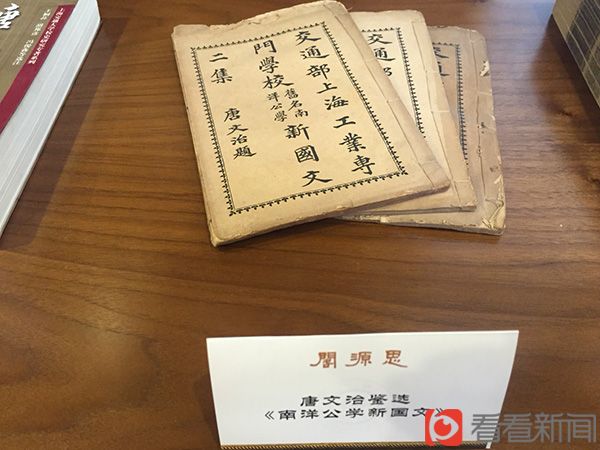 交通部上海工業專
門學校 舊名南洋公學 新國文
二集 唐文治題
交通部
交通
思源閣
唐文治鉴选
《南洋公学新国文》
看看新闻